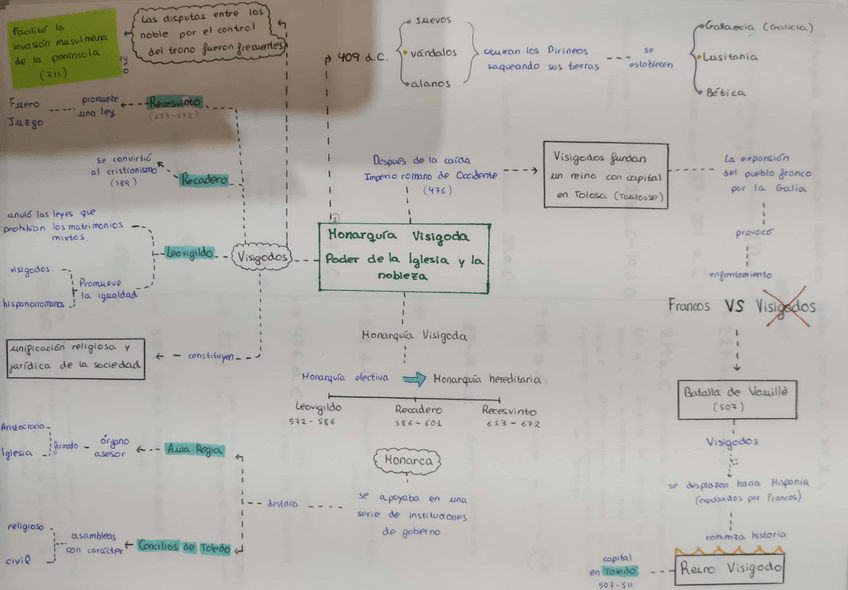 Facilitó la
invasión musulmana
de la península
(711)
Las disputas entre los
noble por el control
del trono fueron frecuentes
y
o
409 d.C.
suevos
vándalos
alanos
cruzan los Pirineos
saqueando sus tierras
se
establecen
Gallaecia (Galicia)
Lusitania
Bética
Fuero
Juzgo
promueve
una ley
Recesvinto
(653-672)
se convirtió
al cristianismo
(589)
Recadero
anuló las leyes que
prohibían los matrimonios
mixtos.
visigodos
hispanorromanos
Promueve
la igualdad
Leovigildo
Visigodos
unificación religiosa y
jurídica de la sociedad
constituyen
Después de la caída
Imperio romano de Occidente
(476)
Visigodos fundan
un reino con capital
en Tolosa (Toulouse)
La expansión
del pueblo franco
por la Galia
provocó
enfrentamiento
Francos VS Visigodos
Batalla de Vouillè
(507)
Visigodos
se desplazan hacia Hispania
(expulsados por Francos)
comienza historia
Reino Visigodo
capital
en Toledo
507-511
Monarquía Visigoda
Poder de la Iglesia y la
nobleza
Monarquía Visigoda
Monarquía electiva
Monarquía hereditaria
Leovigildo
572-586
Recadero
586-601
Recesvinto
653-672
Monarca
se apoyaba en una
serie de instituciones
de gobierno
destaca
Aula Regia
órgano
asesor
formado
Aristocracia
Iglesia
Concilios de Toledo
asambleas
con carácter
religioso
civil